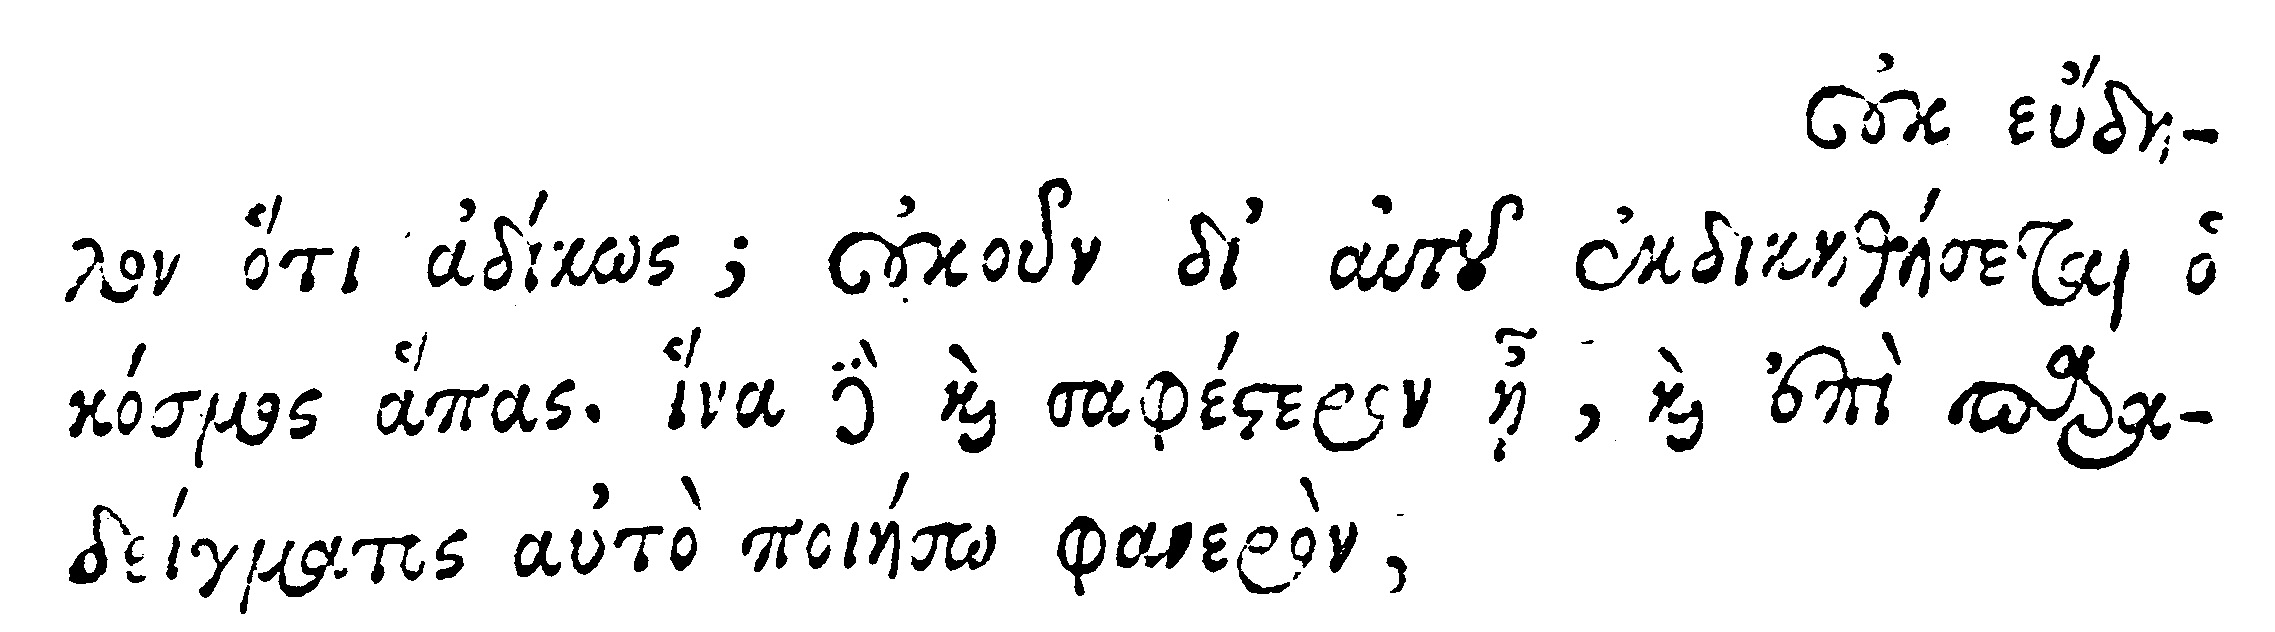 οὐκ εὔδη-
λον ὅτι ἀδίκως; οὐκοῦν δι' αὐτοῦ ἐκδικηθήσεται ὁ
κόσμος ἅπας. ἵνα δὲ καὶ σαφέστερον ᾖ, καὶ ἐπὶ παρα-
δείγματος αὐτὸ ποιήσω φανερὸν,